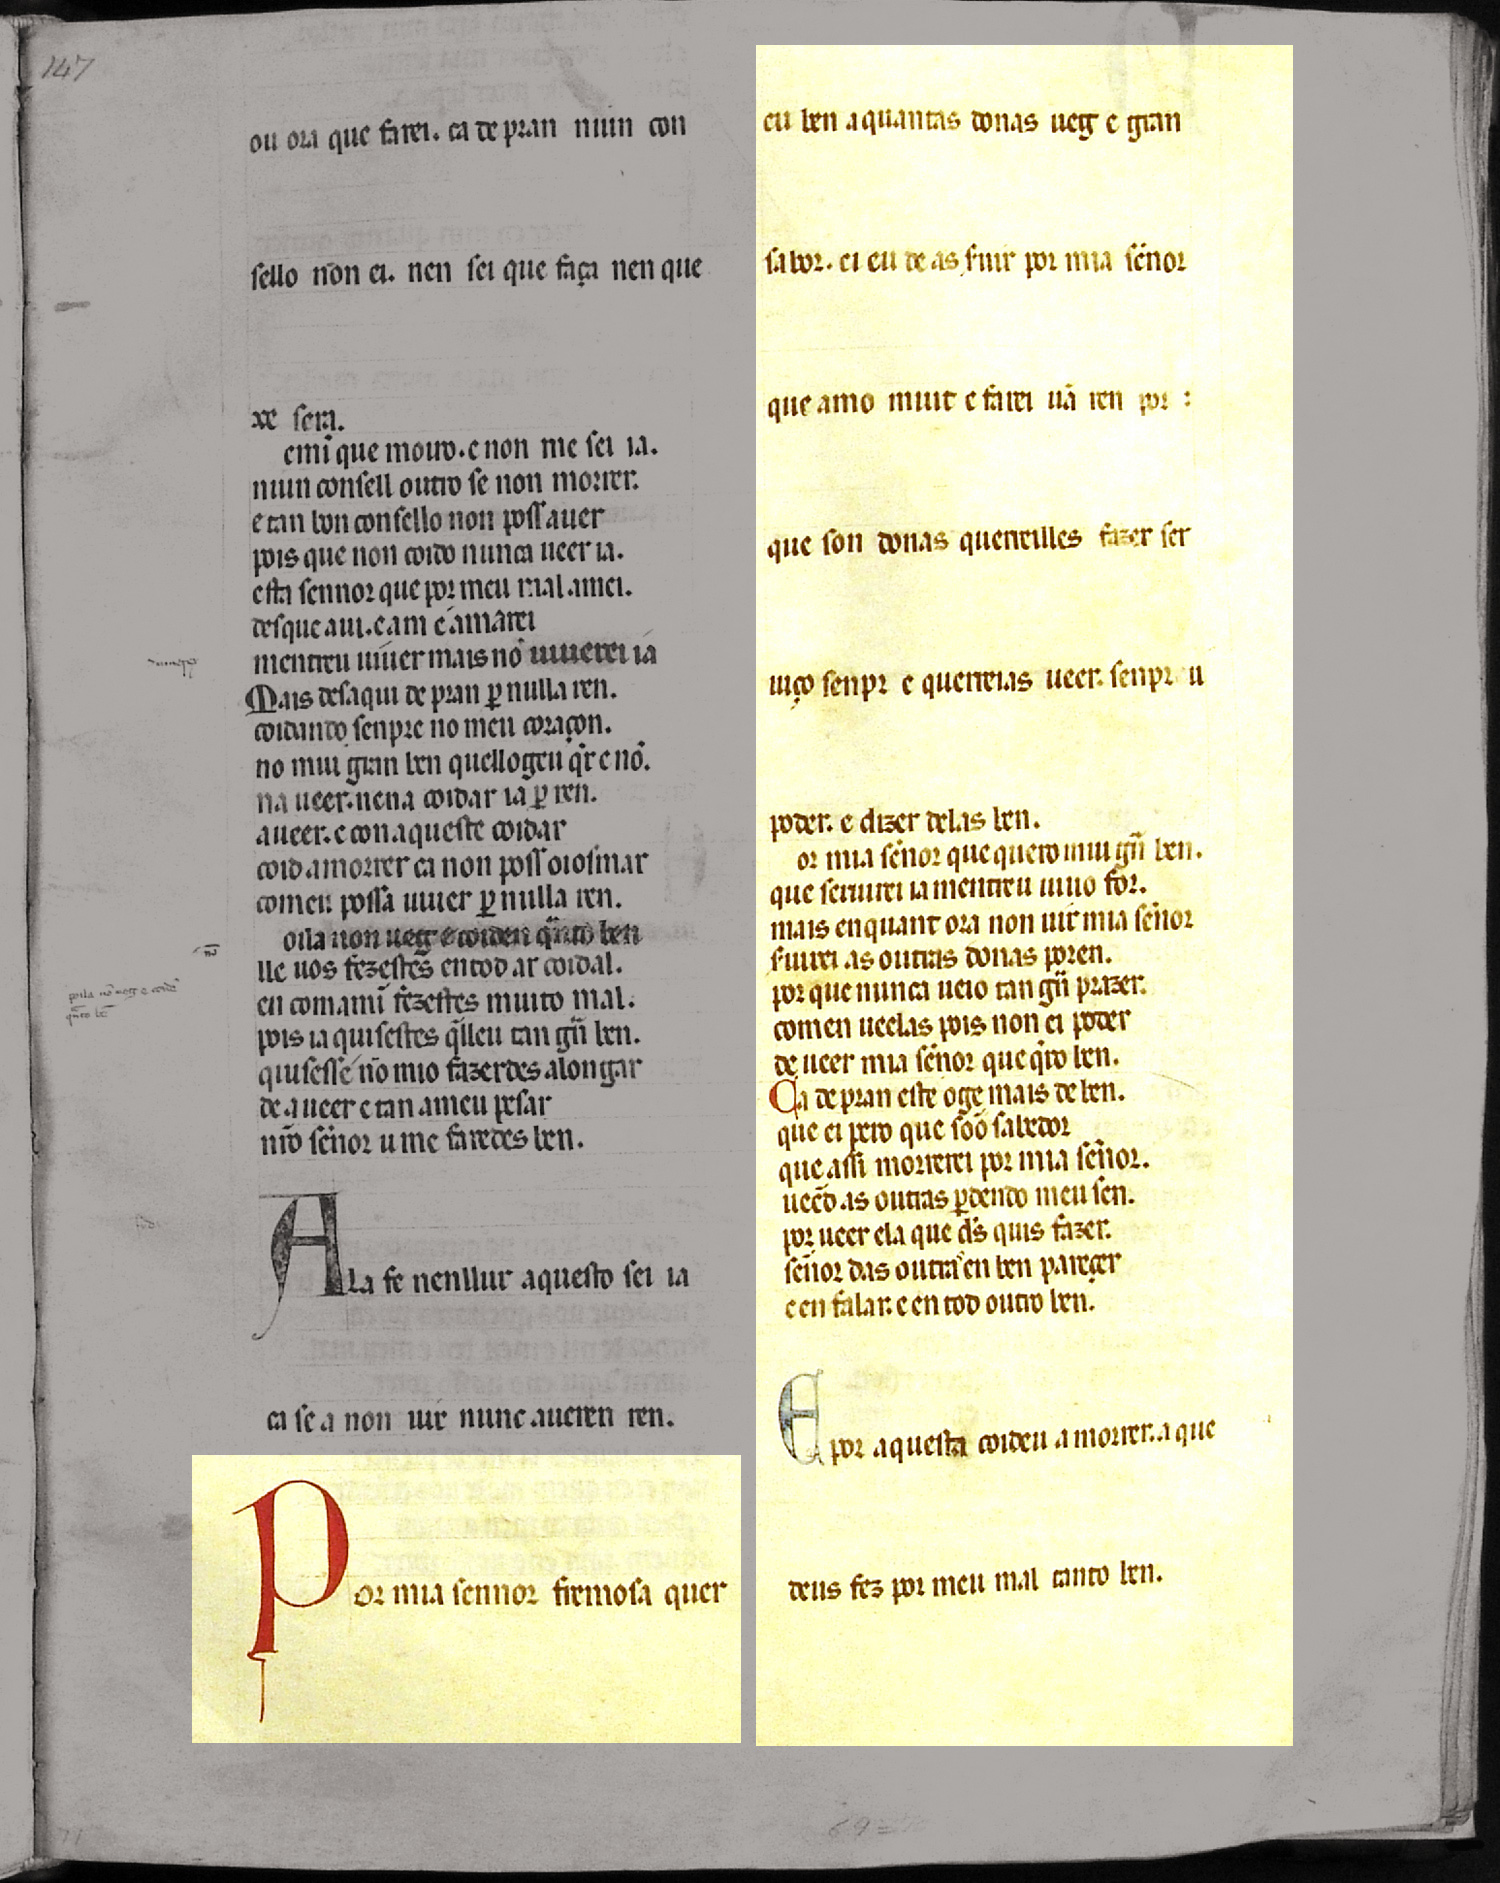 147
ou ora que farei. ca de pran niun con
sello non ei. nen sei que faça nen que
xe sera.
e mĩ que mouro. e non me sei ia.
niun consell outro se non morrer.
e tan bon consello non poss auer
pois que non coido nunca ueer ia.
esta sennor que por meu mal amei.
des que a ui. e am e amarei
mentreu uiuer mais nõ uiuerei ia
Mais desaqui de pran ꝑ nulla ren.
coidando senpre no meu coraçon.
no mui gran ben quellogeu q̃r e nõ.
na ueer. nen a coidar ia ꝑ ren.
a ueer. e con aqueste coidar
coid a morrer ca non poss osmar
comen possa uiuer ꝑ nulla ren.
poila non ueg e coiden q̃nto ben
lle uos fezestes en tod ar coidal.
en com a mĩ fezestes muito mal.
pois ia quisestes q̃lleu tan grñ ben.
quisessẽ nõ mio fazerdes alongar
de a ueer e tan a meu pesar
nr̃o sẽnor u me faredes ben.
ALa fe nenllur aquesto sei ia
ca se a non uir nunc aueren ren.
Por mia sennor fremosa quer
eu ben a quantas donas ueg e gran
sabor. ei eu de as seruir por mia sẽnor
que amo muit e farei ũa ren por :
que son donas querreilles fazer ser
uiço senpr e querreias ueer. senpr u
poder. e dizer delas ben.
or mia sẽnor que quero mui grñ ben.
que seruirei ia mentreu uiuo for.
mais enquant ora non uir mia sẽnor
seruirei as outras donas poren.
por que nunca ueio tan grñ prazer.
comen ueelas pois non ei poder
de ueer mia sẽnor que q̃ro ben.
Ca de pran este oge mais de ben.
que ei pero que sõo sabedor
que assi morrerei por mia sẽnor.
ueẽdo as outras ꝑdendo meu sen.
por ueer ela que d̃s quis fazer.
sẽnor das outras en ben pareçer
e en falar. e en tod outro ben.
E por aquesta coideu a morrer. a que
deus fez por meu mal tanto ben.